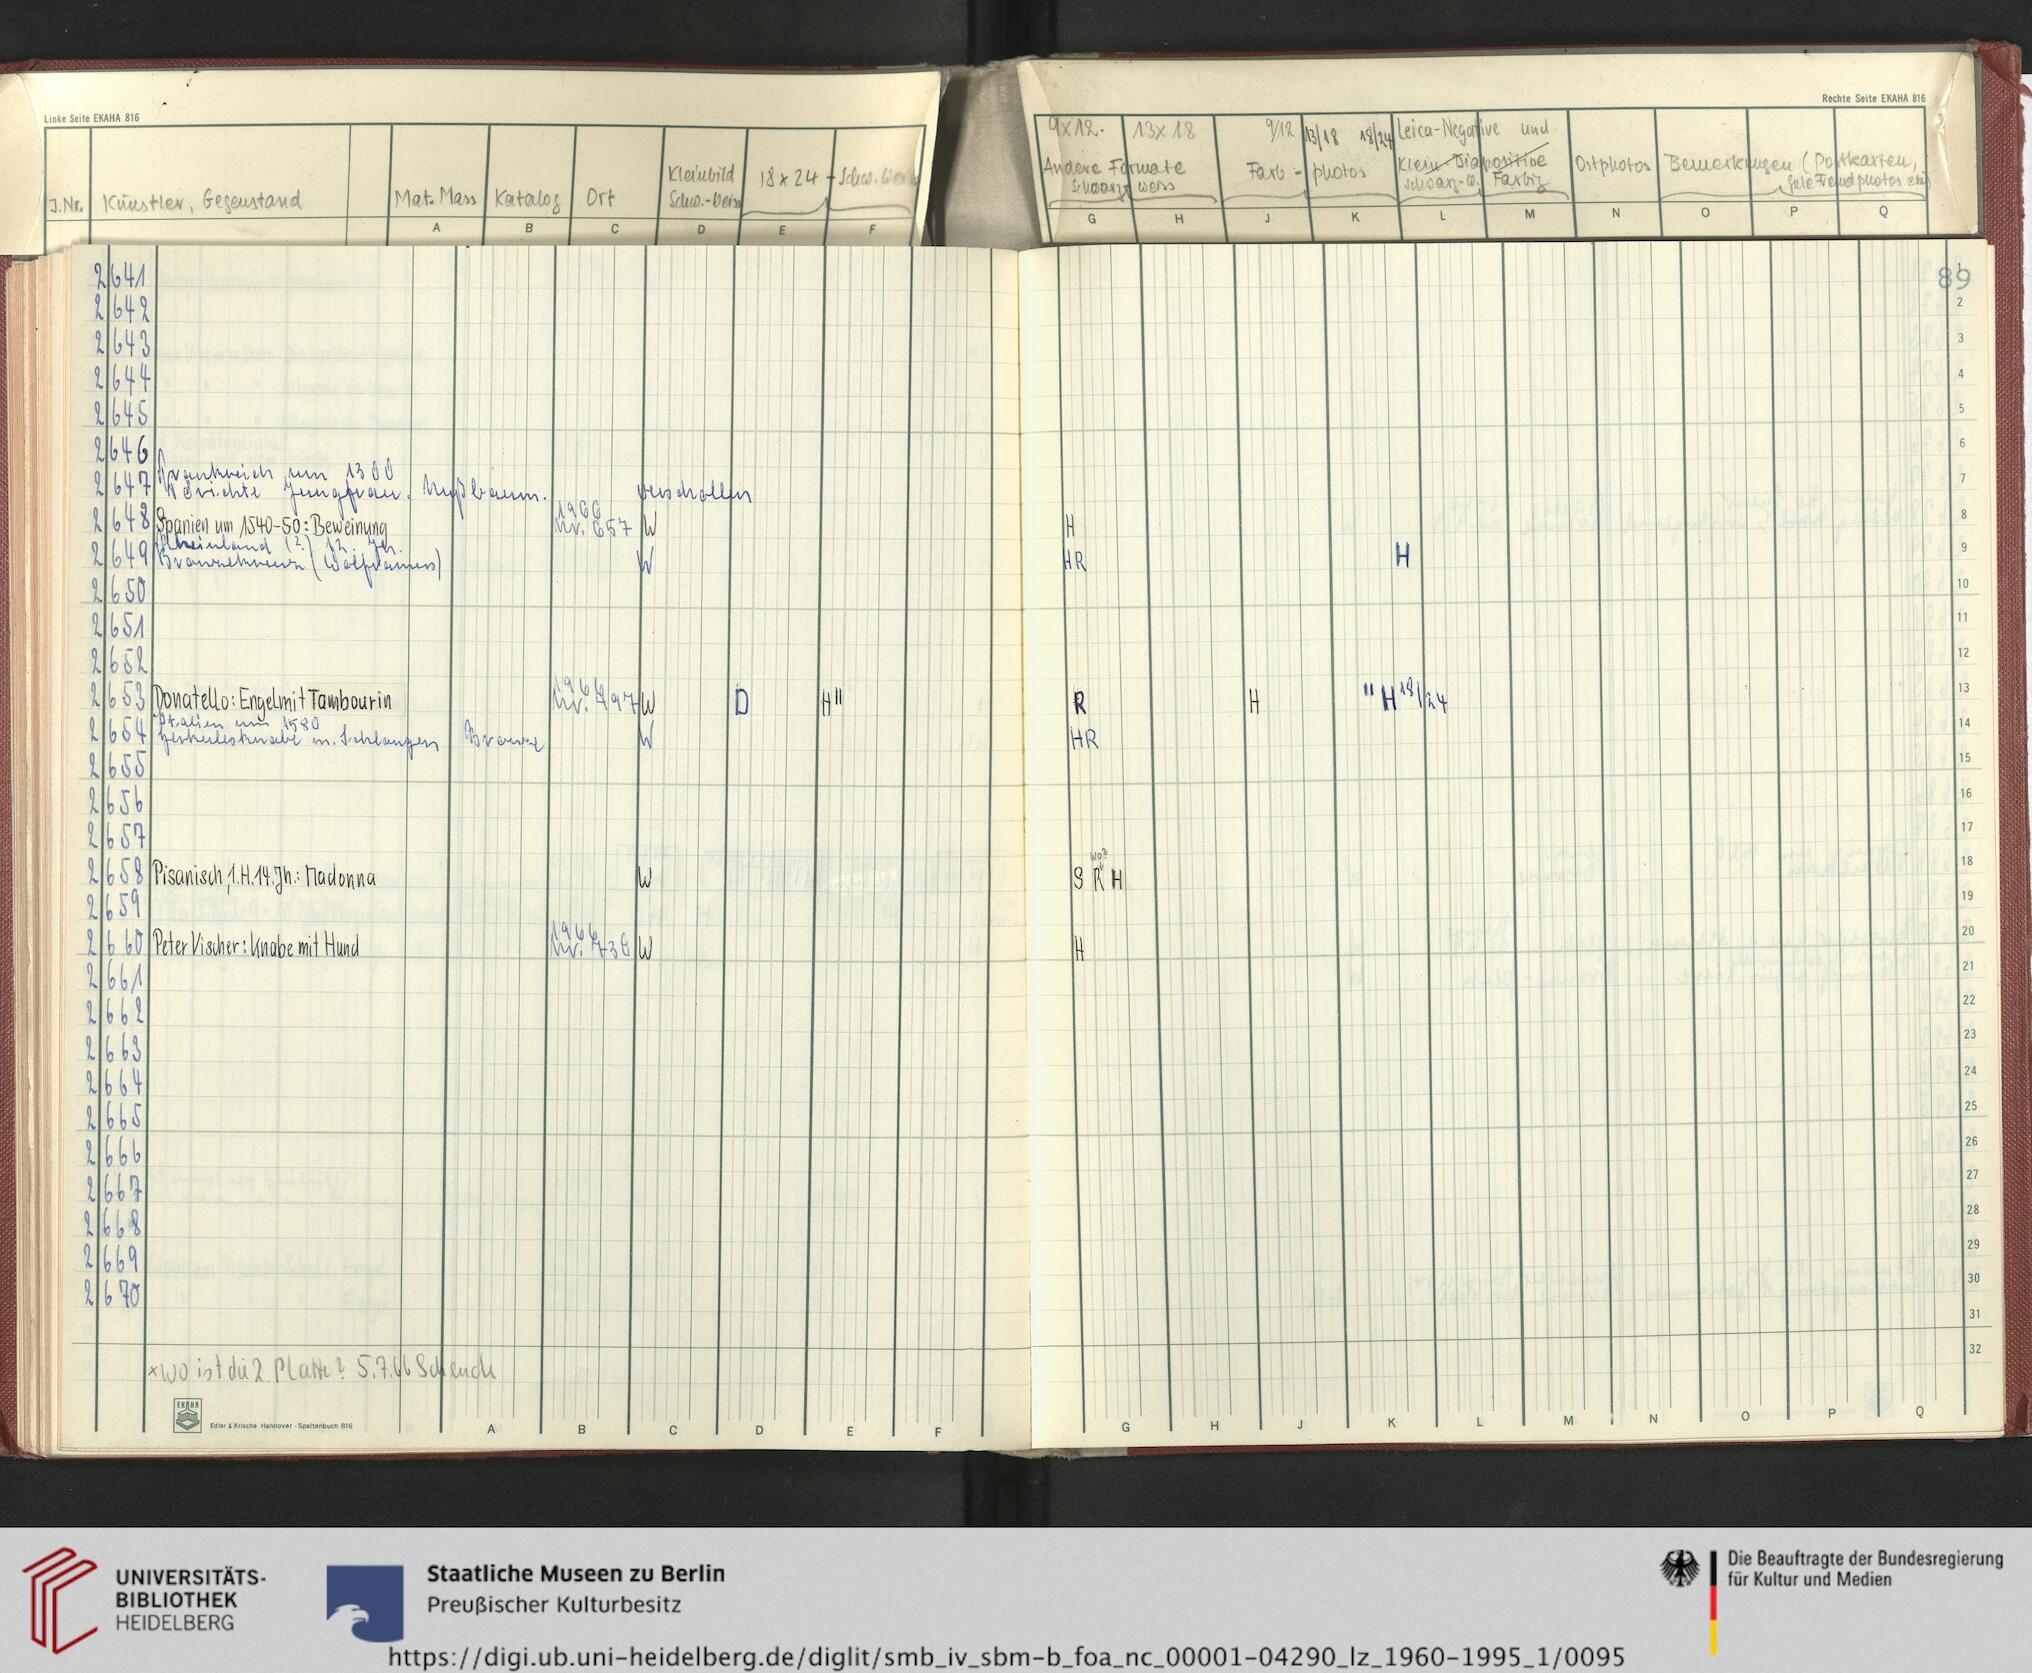 Linke Seite EKAHA 816
J.Nr. Künstler, Gegenstand Mat. Mass Katalog Ort Kleinbild Schw.-Weiss 18x24 - Schw. Weiss
A B C D E F
Rechte Seite EKAHA 816
9x12. 13x18 9/12 13/18 18/24 Leica-Negative und
Andere Formate Farb- photos Klein-Diapositive Ostphotos Bemerkungen (Postkarten,
schwarz weiss schwarz-w. Farbig gute Fremdphotos etc)
G H J K L M N O P Q
89
2641 1
2642 2
2643 3
2644 4
2645 5
2646 6
Frankreich um 1300
2647 Törichte Jungfrau. Nußbaum. verschollen 7
2648 Spanien um 1540-50: Beweinung 1966 Nr. 657 W H 8
Rheinland (?) 12. Jh.
2649 Bronzekreuz (Wolframus) W HR H 9
2650 10
2651 11
2652 12
2653 Donatello: Engel mit Tambourin 1966 Nr. 497 W D H" R H "H 18/24 13
Italien um 1580
2654 Herkulesknabe m. Schlangen Bronze W HR 14
2655 15
2656 16
2657 17
wo?
2658 Pisanisch, 1.H.14.Jh.: Madonna W S R H 18
2659 19
2660 Peter Vischer: Knabe mit Hund 1966 Nr. 730 W H 20
2661 21
2662 22
2663 23
2664 24
2665 25
2666 26
2667 27
2668 28
2669 29
2670 30
31
32
x wo ist die 2. Platte? 5.7.66 Schench
EKAHA
Edler & Krische Hannover · Spaltenbuch 816
A B C D E F
G H J K L M N O P Q
UNIVERSITÄTS-
BIBLIOTHEK
HEIDELBERG
Staatliche Museen zu Berlin
Preußischer Kulturbesitz
Die Beauftragte der Bundesregierung
für Kultur und Medien
https://digi.ub.uni-heidelberg.de/diglit/smb_iv_sbm-b_foa_nc_00001-04290_lz_1960-1995_1/0095